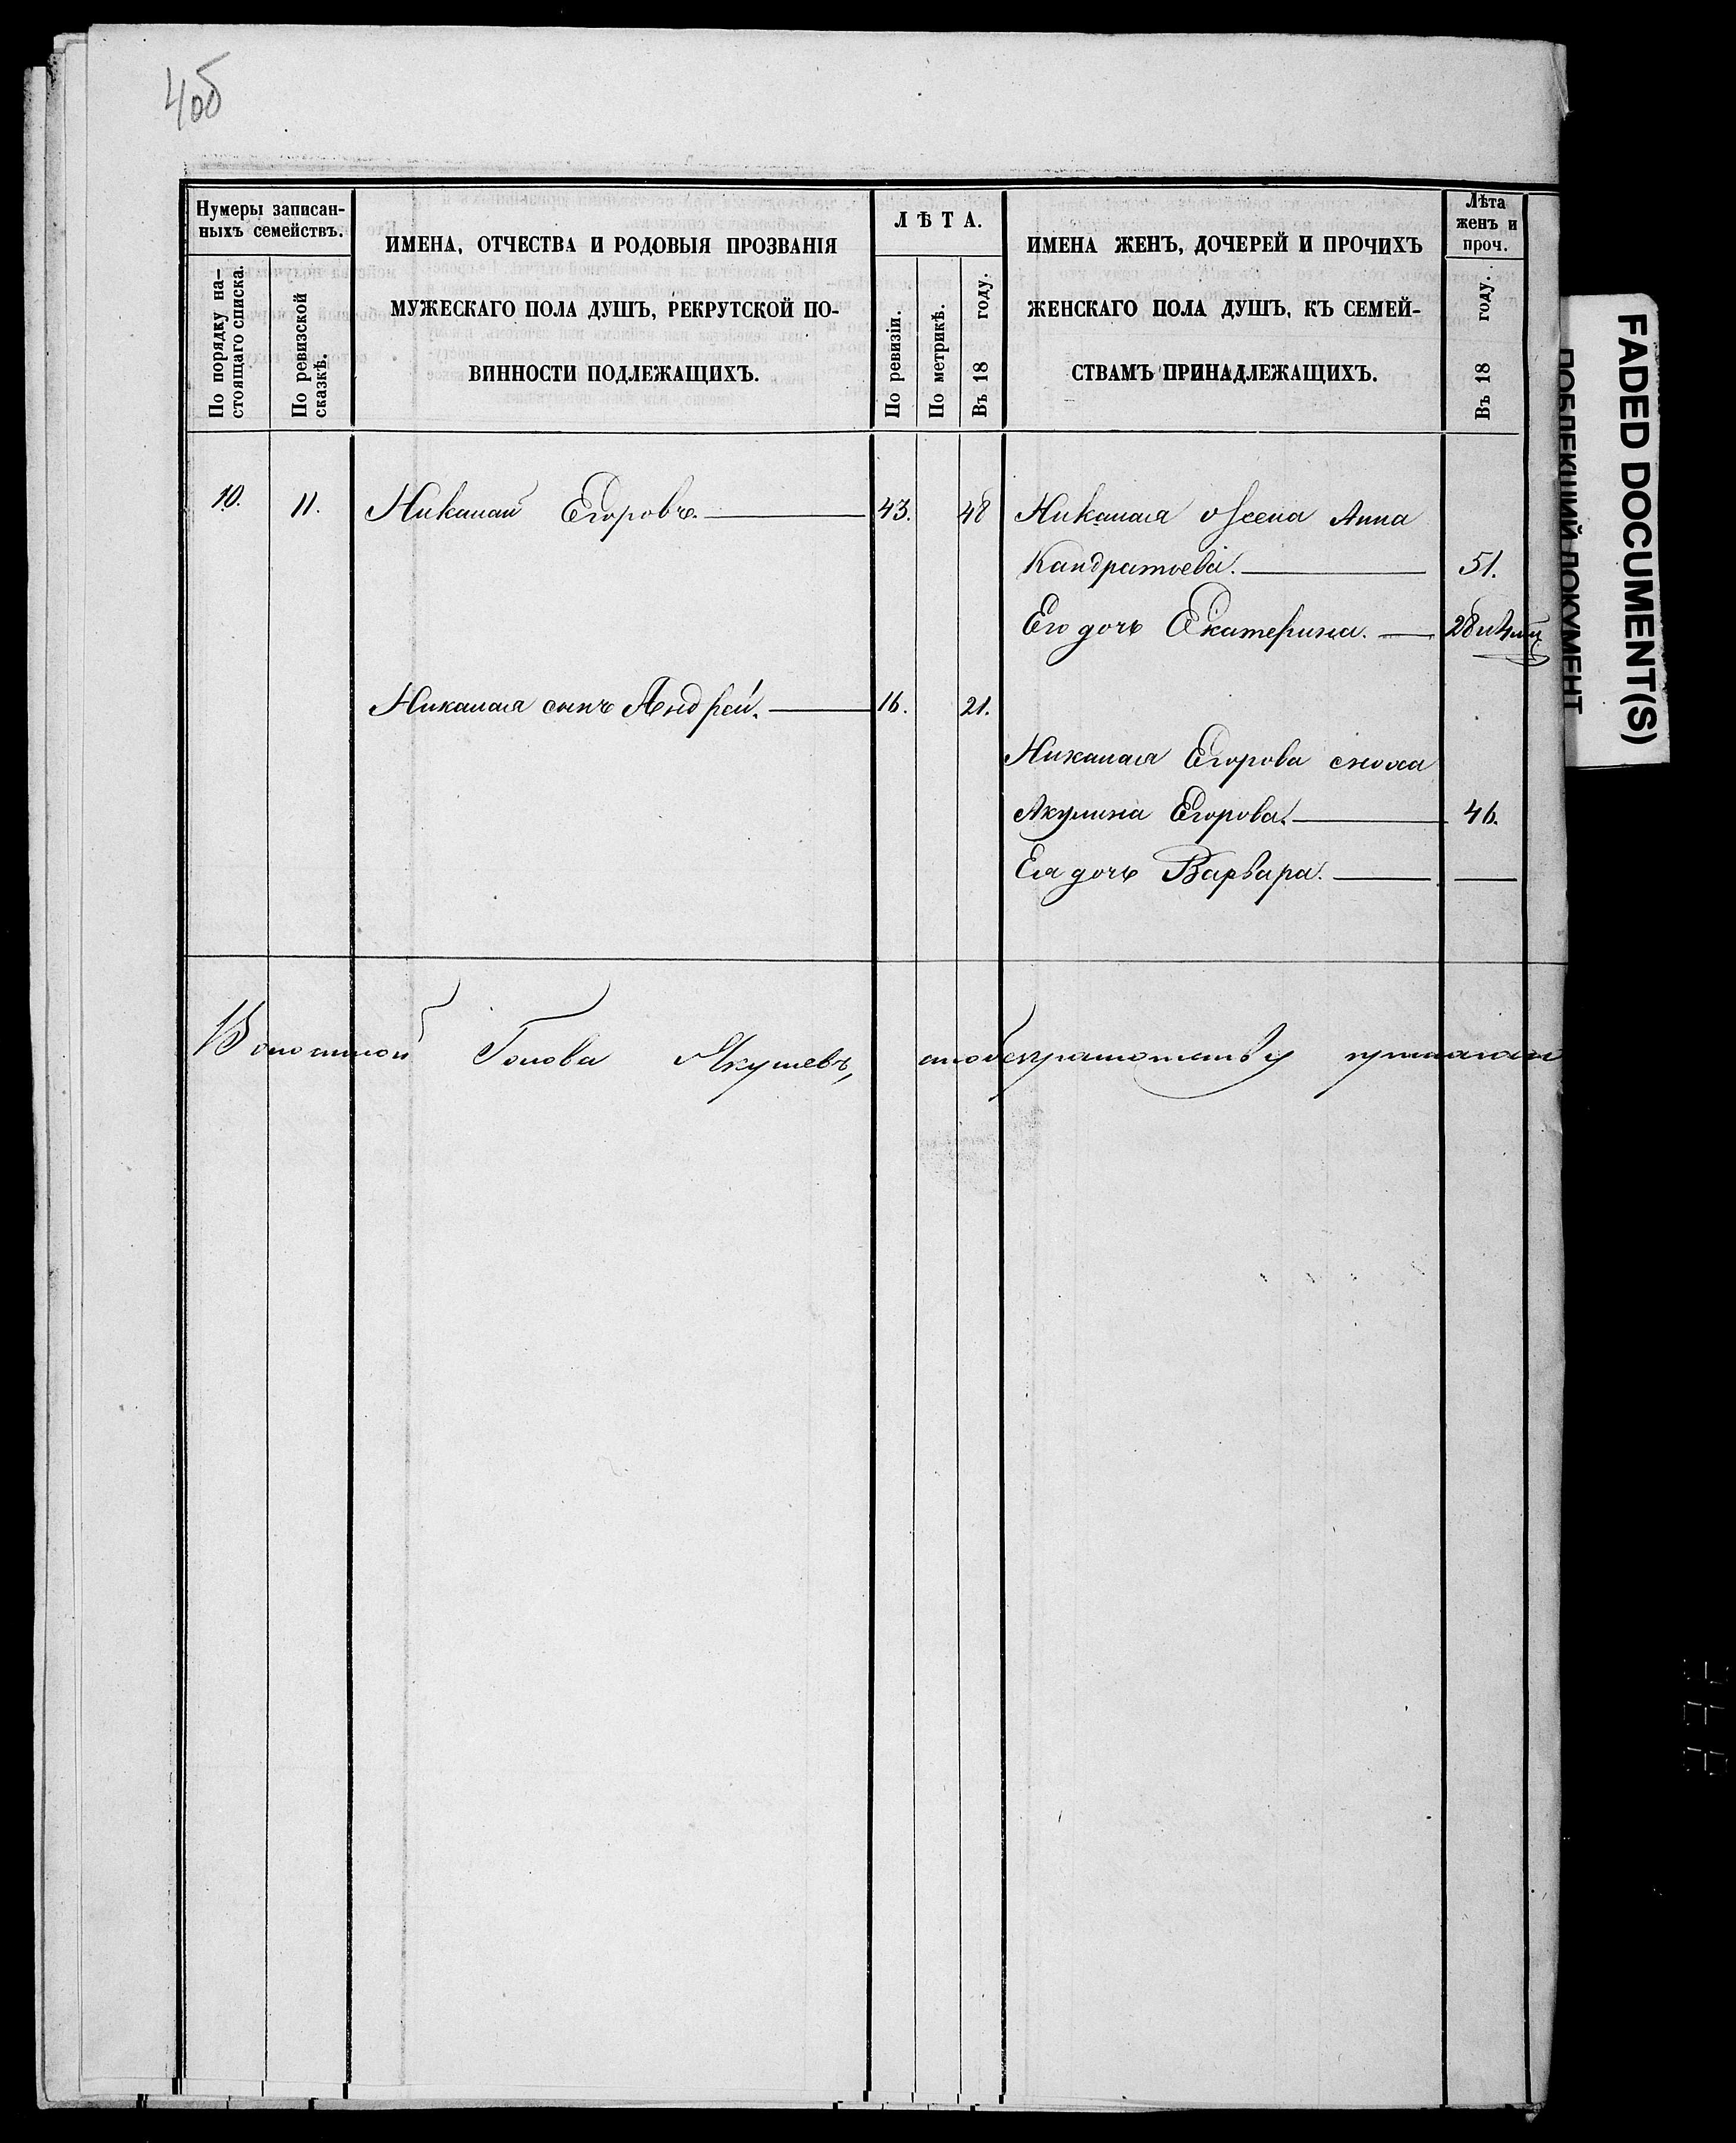 4об
Нумеры записан-
ныхъ семействъ.
По порядку на-
стоящаго списка.
По ревизской
сказкѣ.
ИМЕНА, ОТЧЕСТВА И РОДОВЫЯ ПРОЗВАНІЯ
МУЖЕСКАГО ПОЛА ДУШЪ, РЕКРУТСКОЙ ПО-
ВИННОСТИ ПОДЛЕЖАЩИХЪ.
ЛѢТА.
По ревизіи.
По метрикѣ.
Въ 18 году.
ИМЕНА ЖЕНЪ, ДОЧЕРЕЙ И ПРОЧИХЪ
ЖЕНСКАГО ПОЛА ДУШЪ, КЪ СЕМЕЙ-
СТВАМЪ ПРИНАДЛЕЖАЩИХЪ.
Лѣта
женъ и
проч.
Въ 18 году.
10. 11. Никалай Егоровъ. 43. 48 Никалая жена Анна
Кандратьева. 51.
Его дочь Екатерина. 28
Никалая сынъ Андрей. 16. 21.
Никалая Егорова сноха
Акулина Егорова. 46.
Ея дочь Варвара.
Волостной Голова Якушевъ,
FADED DOCUMENT(S)
ПОБЛЕКШИЙ ДОКУМЕНТ